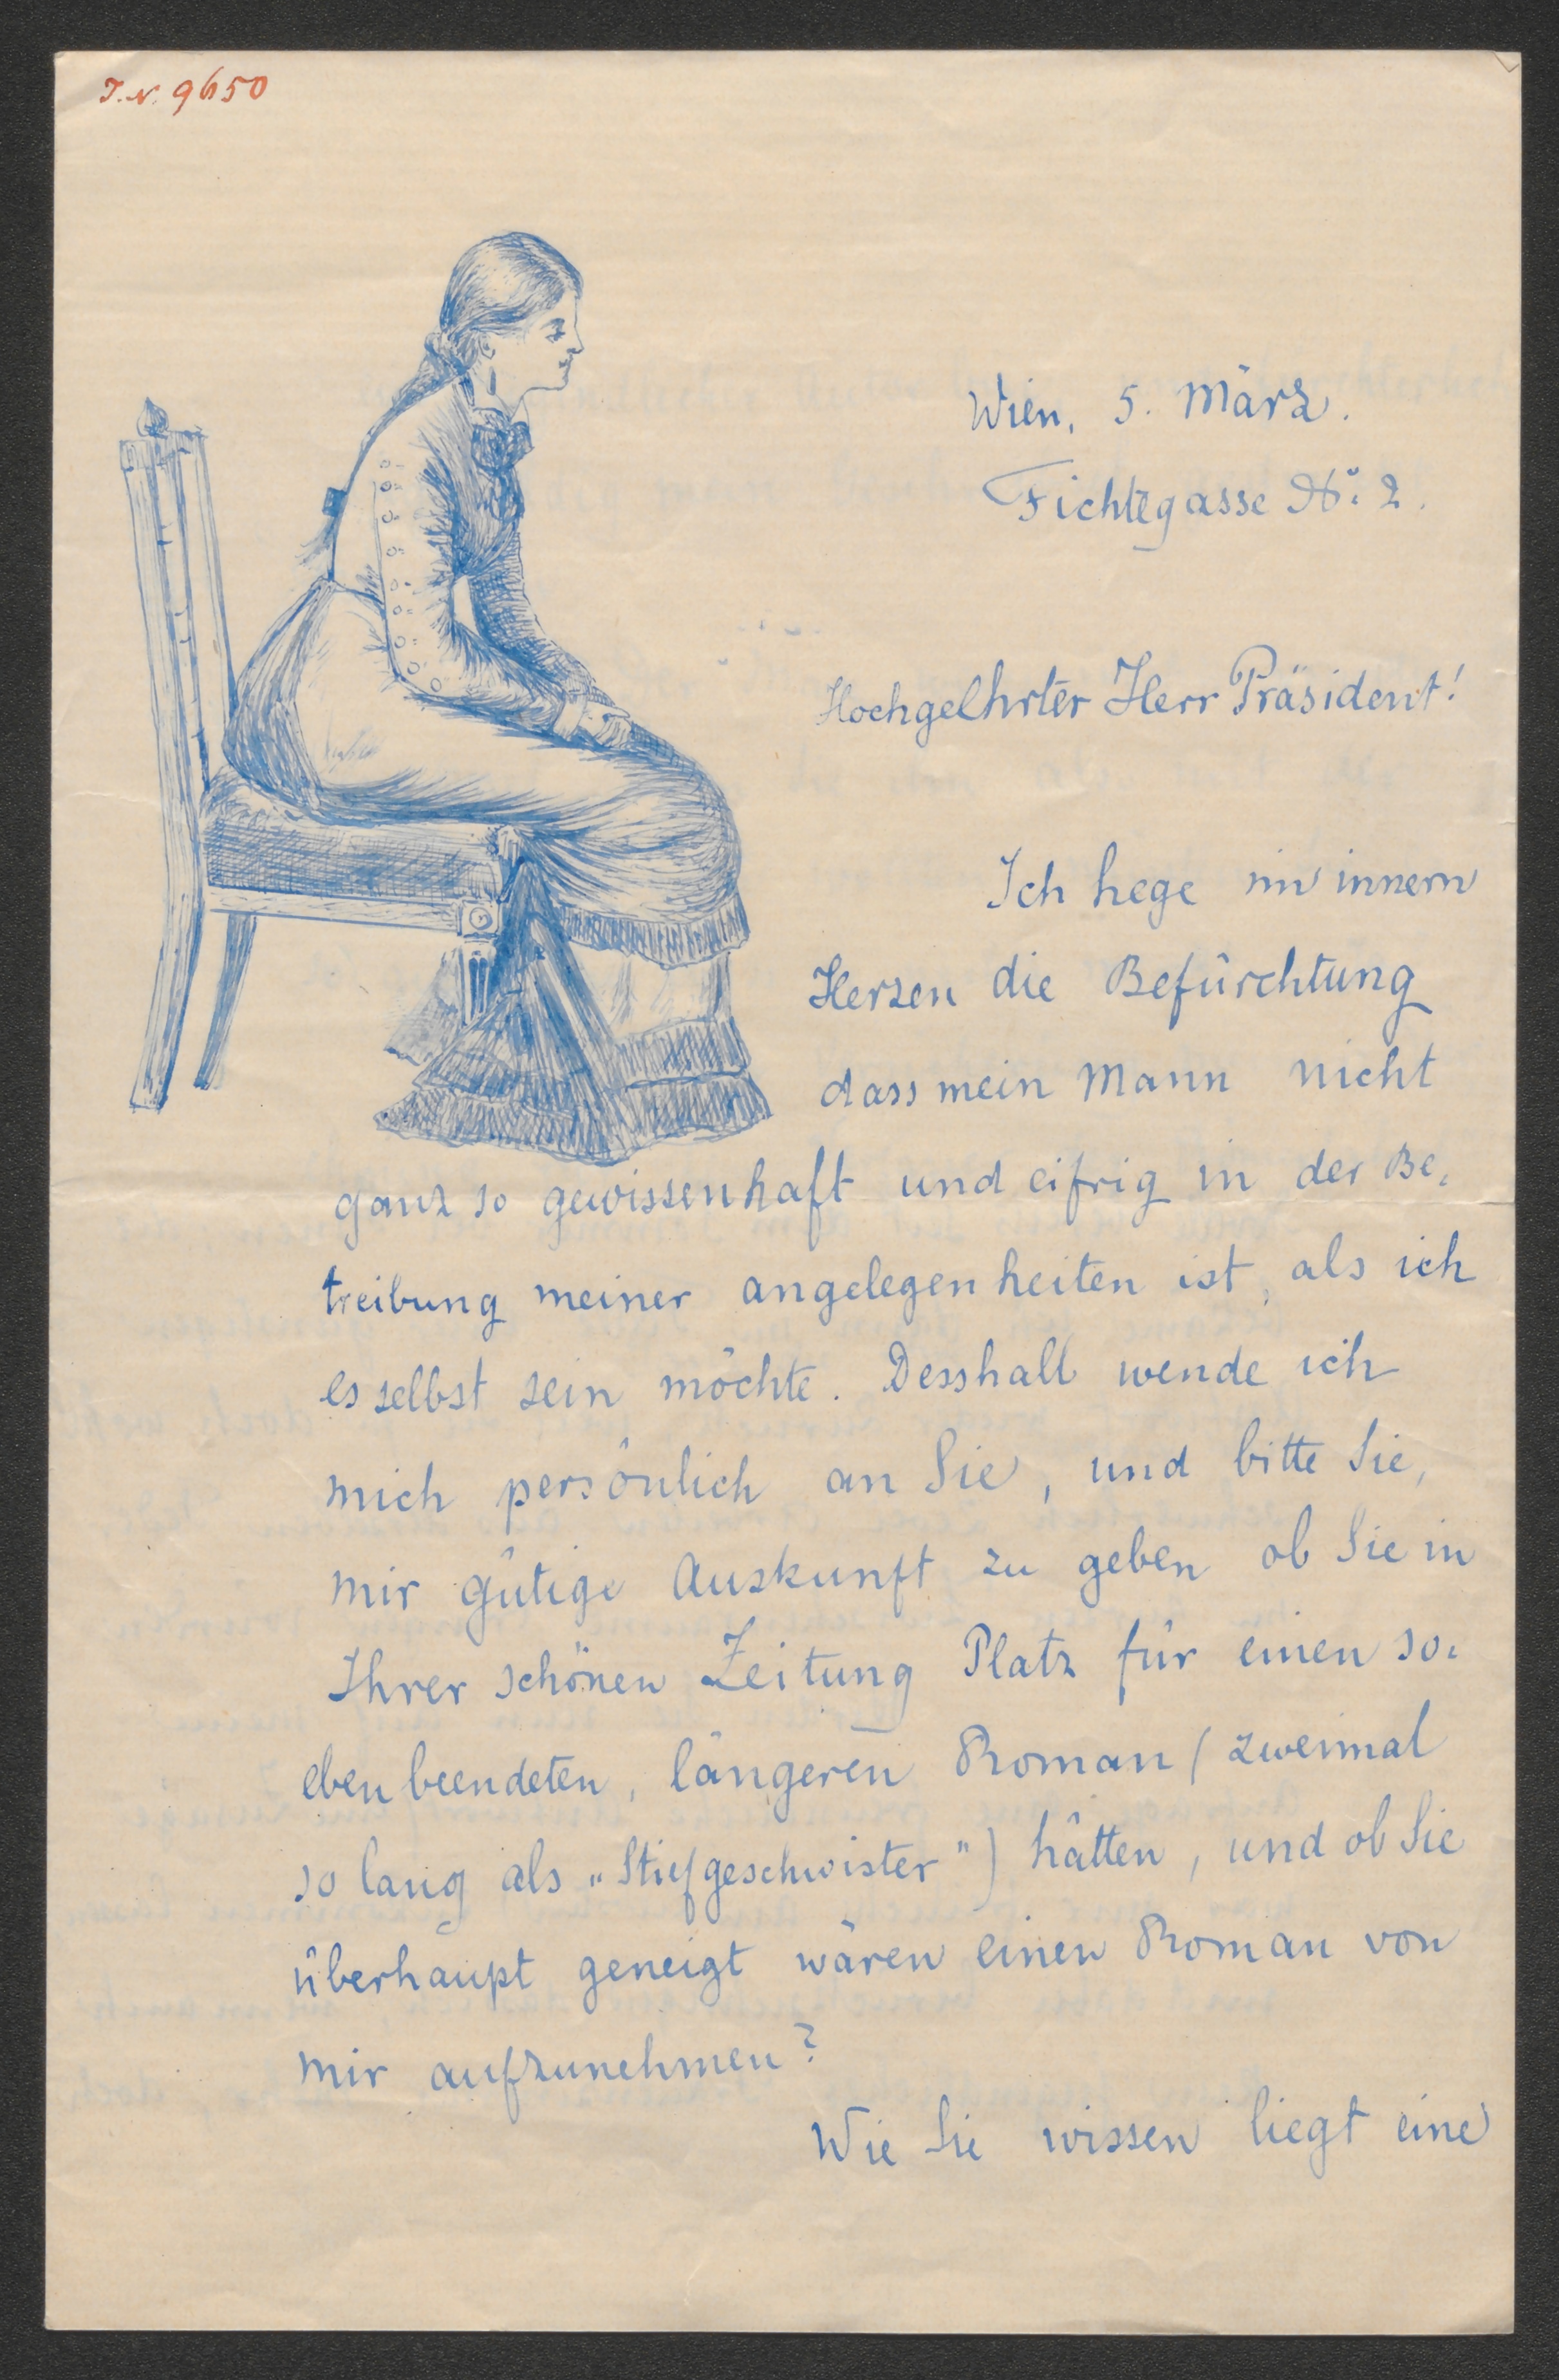 J.N. 9650
Wien, 5. März.
Fichtegasse No. 2.
Hochgeehrter Herr Präsident!
Ich hege im innern
Herzen die Befürchtung
dass mein Mann nicht
ganz so gewissenhaft und eifrig in der Be-
treibung meiner Angelegenheiten ist, als ich
es selbst sein möchte. Desshalb wende ich
mich persönlich an Sie, und bitte Sie,
mir gütige Auskunft zu geben ob Sie in
Ihrer schönen Zeitung Platz für einen so-
eben beendeten, längeren Roman (zweimal
so lang als „Stiefgeschwister") hätten, und ob Sie
überhaupt geneigt wären einen Roman von
mir aufzunehmen?
Wie Sie wissen liegt eine